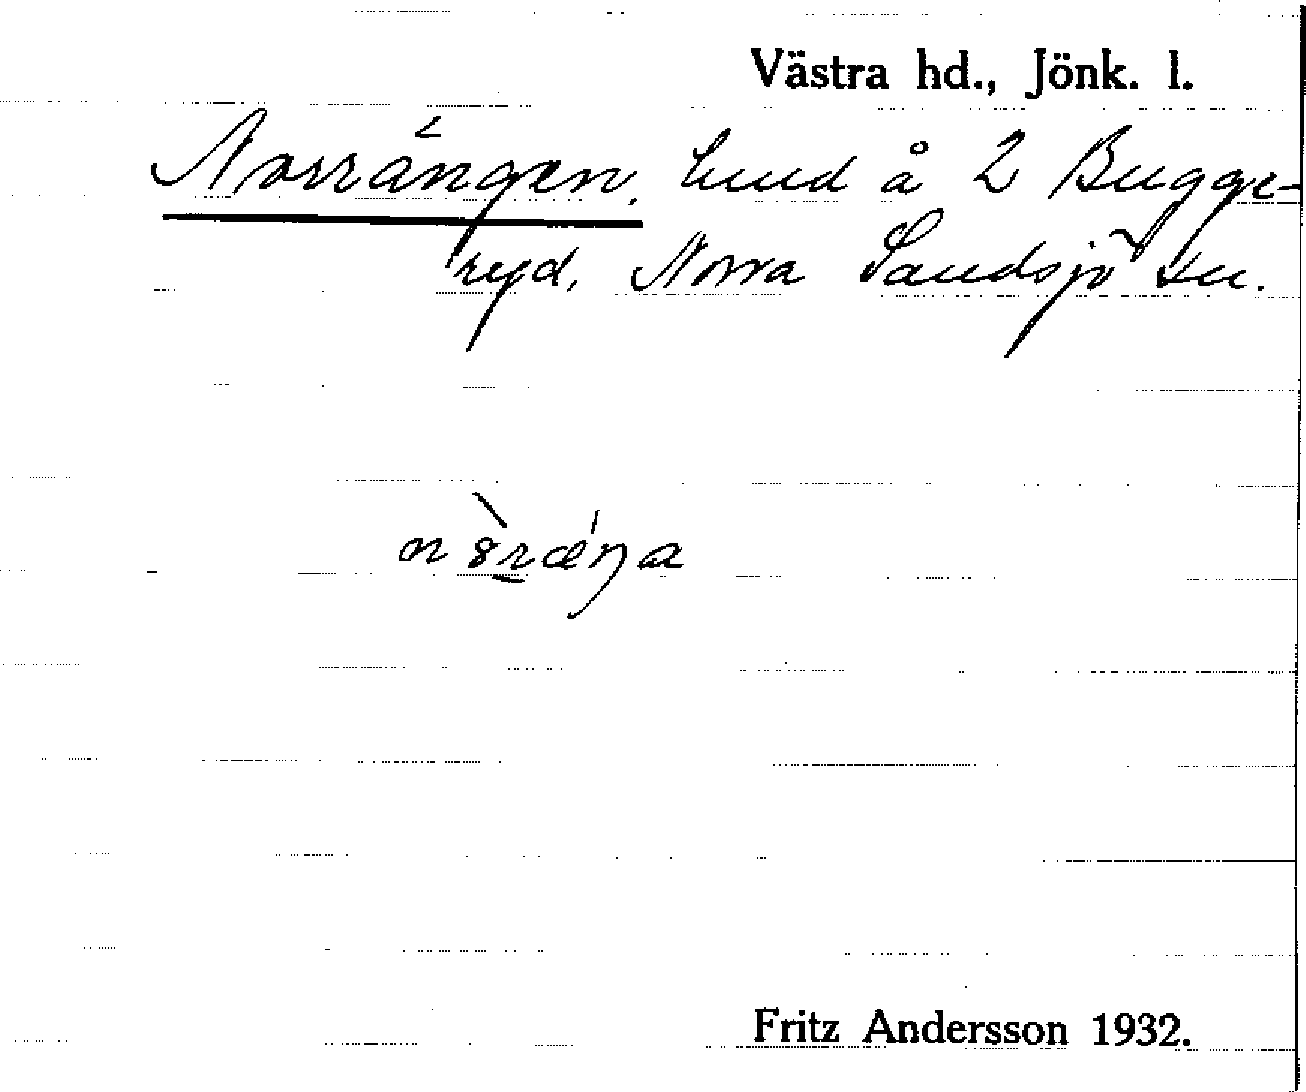 Västra hd., Jönk. l.
Norrängen. lund å 2 Bugge-
ryd, Norra Sandsjö sn.
n8̀ræ̍ŋa
Fritz Andersson 1932.